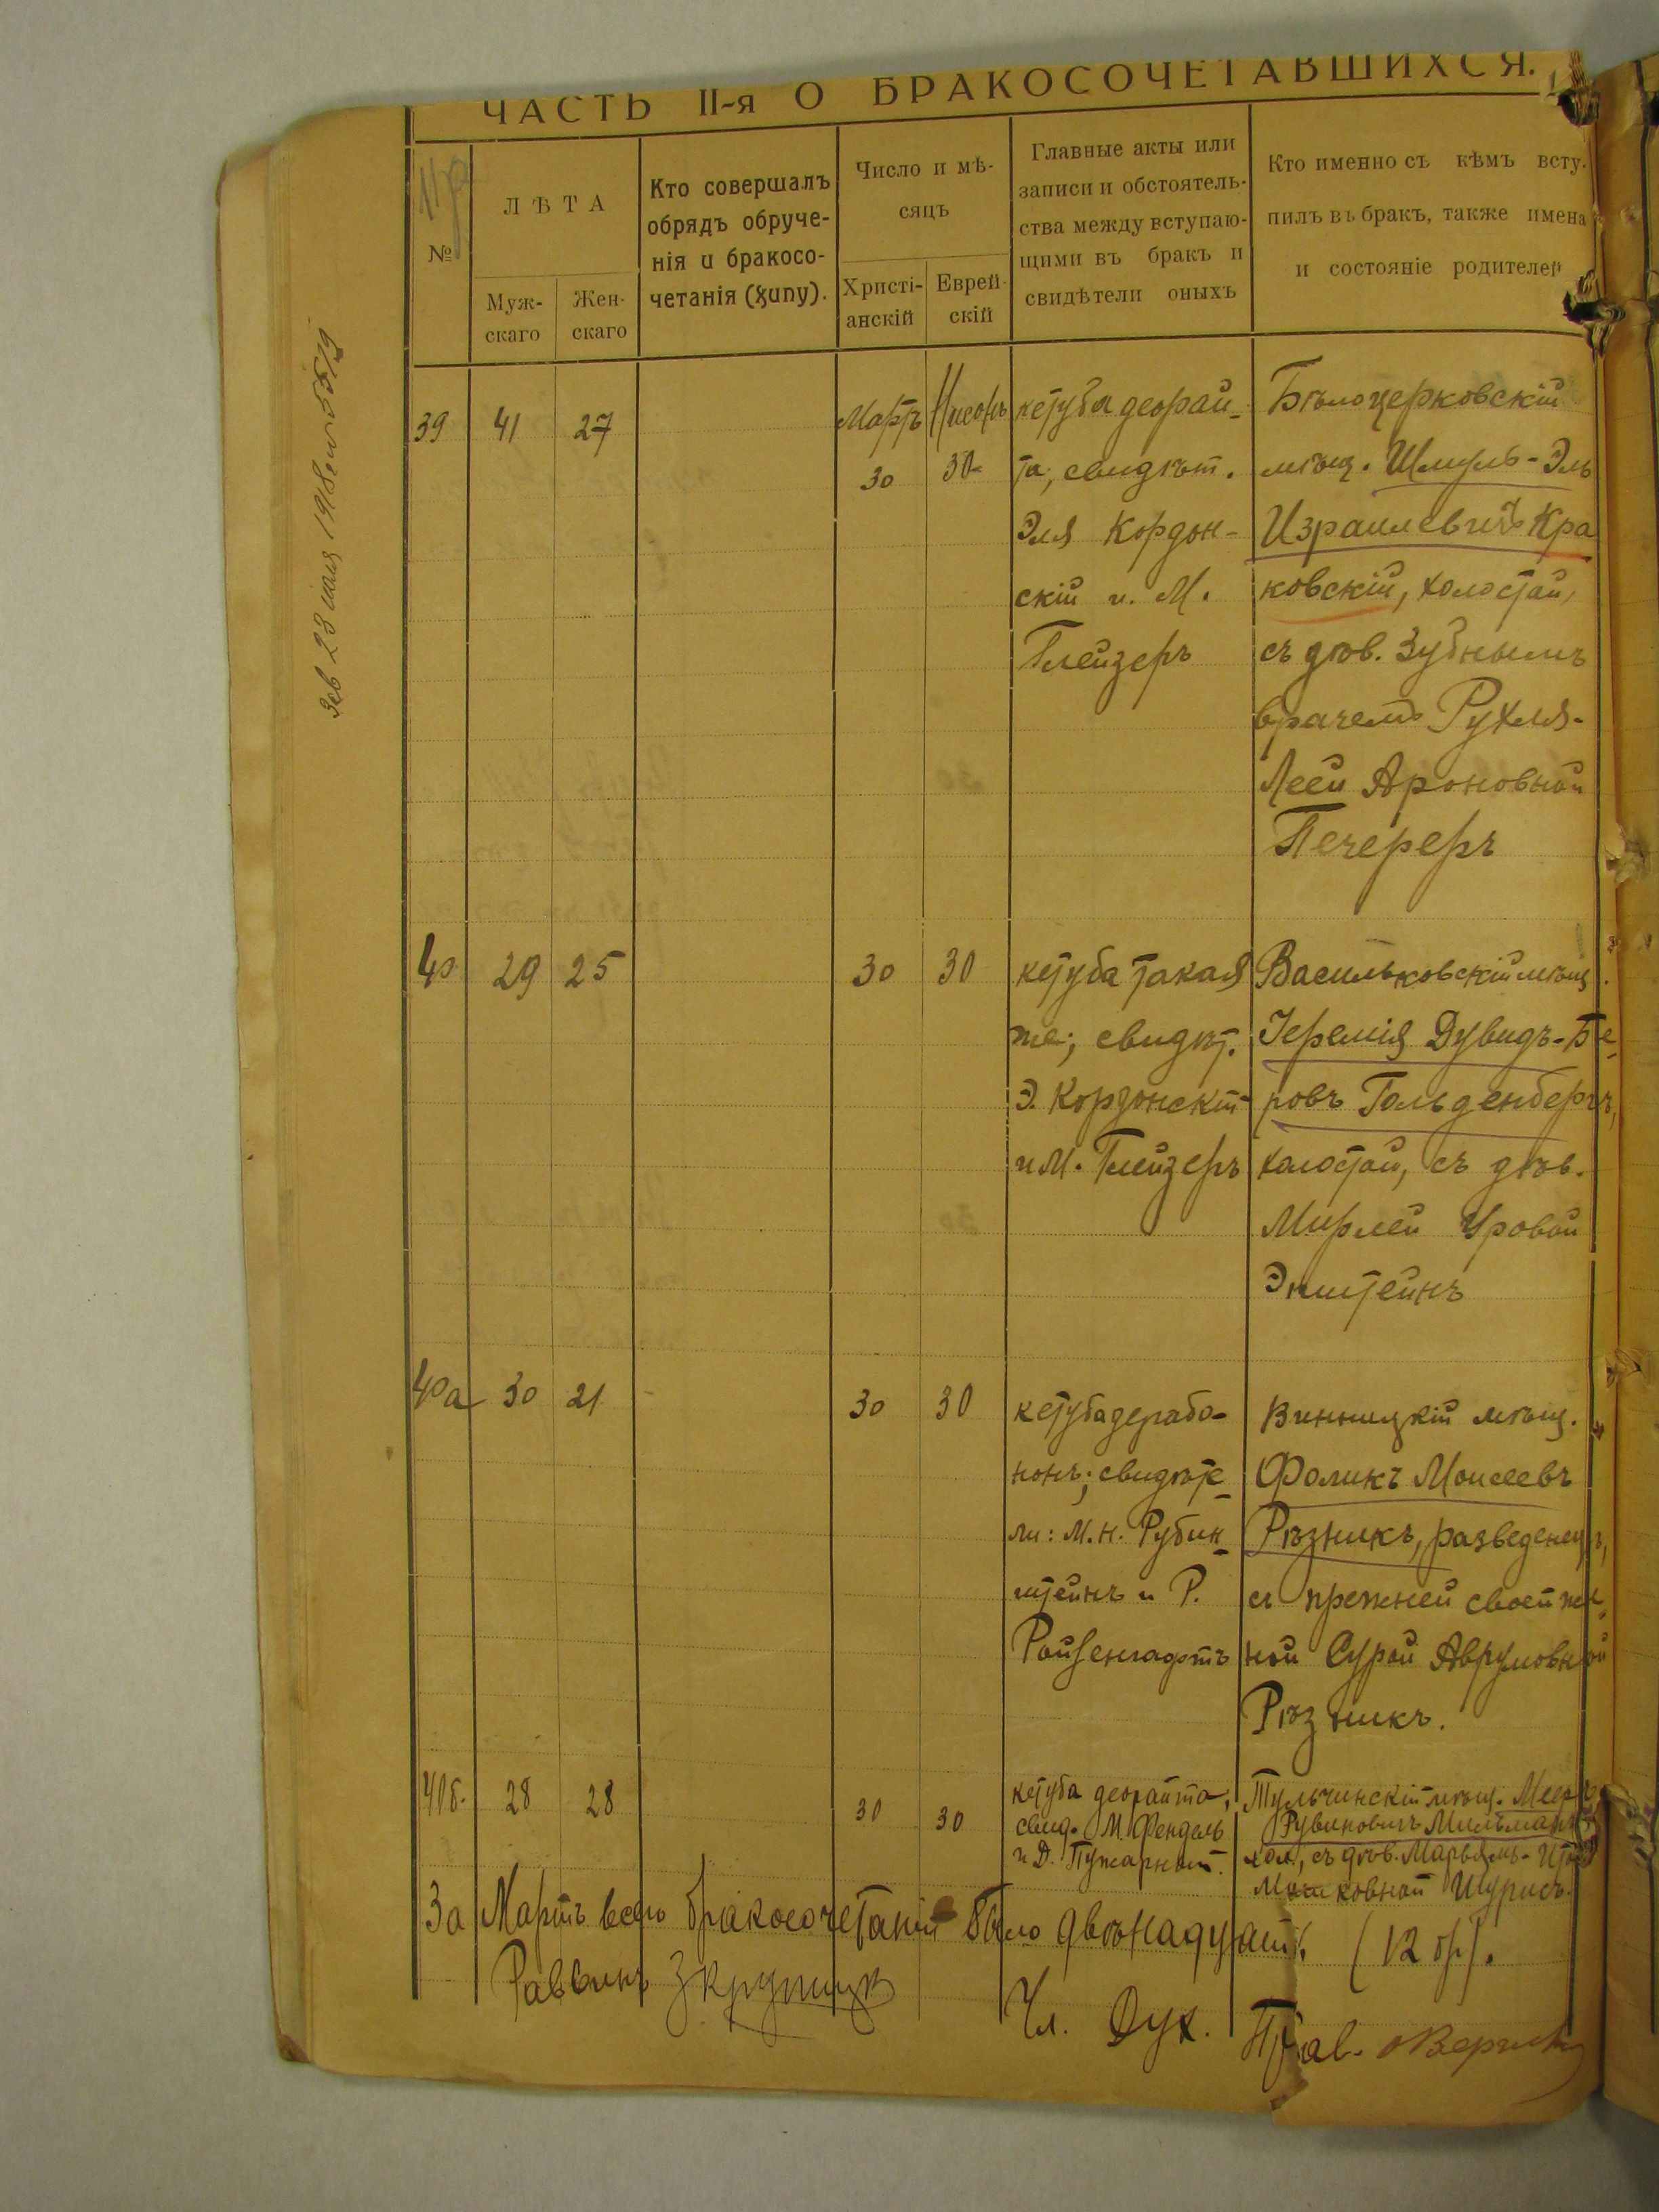 ЧАСТЬ II-я О БРАКОСОЧЕТАВШИХСЯ.
№
ЛѢТА
Муж-
скаго
Жен-
скаго
Кто совершалъ
обрядъ обруче-
нія и бракосо-
четанія (хупу).
Число и мѣ-
сяцъ
Христі-
анскій
Еврей-
скій
Главные акты или
записи и обстоятель-
ства между вступаю-
щими въ бракъ и
свидѣтели оныхъ
Кто именно съ кѣмъ всту-
пилъ въ бракъ, также имена
и состояніе родителей
23 мая 1918
39 41 27
Мартъ
30
Нисонъ
30
кетуба деорай-
та, свидѣт.
Эля Кордон-
скій и М.
Глейзеръ
Бѣлоцерковскій
мѣщ. Шмуль-Эль
Израилевичъ Кра
ковскій, холостой,
съ дѣв. Зубнымъ
врачемъ Рухля-
Леей Ароновной
Печереръ
40 29 25 30 30
кетуба такая
же; свидѣт.
Э. Кордонскій
и М. Глейзеръ
Васильковскій мѣщ.
Іеремія Дувидъ-Бе-
ровъ Гольденбергъ,
холостой, съ дѣв.
Мирлей Уровой
Эпштейнъ
40а 30 21 30 30
кетуба дерабо-
нонъ; свидѣте-
ли: М.Н. Рубин-
штейнъ и Р.
Ройзенгартъ
Винницкій мѣщ.
Фоликъ Моисеевъ
Рѣзникъ, разведенецъ,
съ прежней своей же-
ной Сурой Аврумовной
Рѣзникъ.
40б. 28 28 30 30
кетуба деорайта,
свид. М. Фендель
и Д. Пужарный.
Тульчинскій мѣщ. Меер
Рувиновичъ Мильманъ
хол., съ дѣв. Марьямъ-
Мошковной Шурисъ.
За Мартъ всего бракосочетаній было двѣнадцать. (12 бр).
Раввинъ
Чл. Дух. Прав.